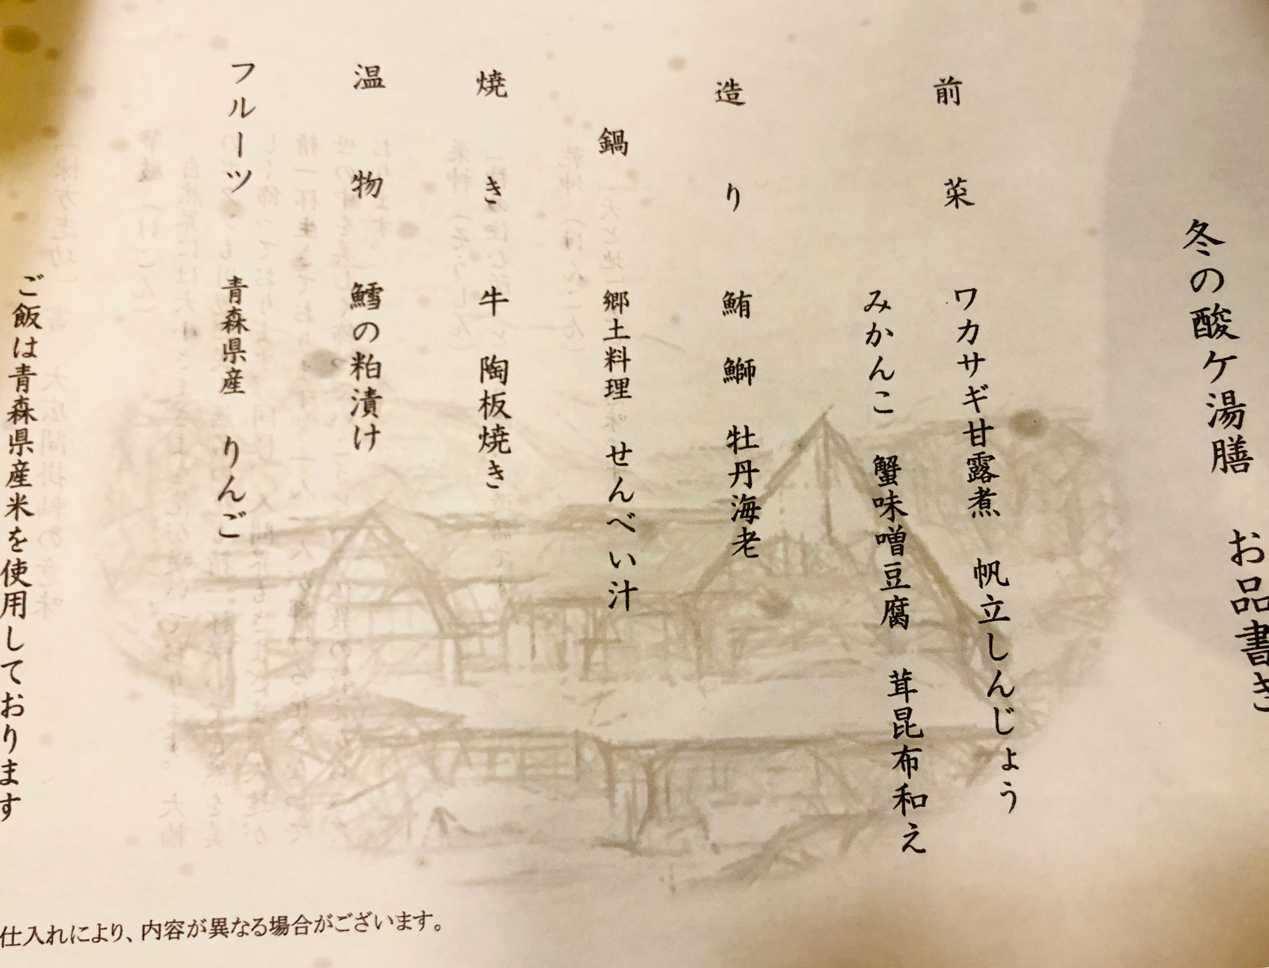 冬の酸ケ湯膳　お品書き
前菜　ワカサギ甘露煮　帆立しんじょう
みかんこ　蟹味噌豆腐　茸昆布和え
造り　鮪　鰤　牡丹海老
鍋　郷土料理　せんべい汁
焼き　牛　陶板焼き
温物　鱈の粕漬け
フルーツ　青森県産　りんご
ご飯は青森県産米を使用しております
仕入れにより、内容が異なる場合がございます。